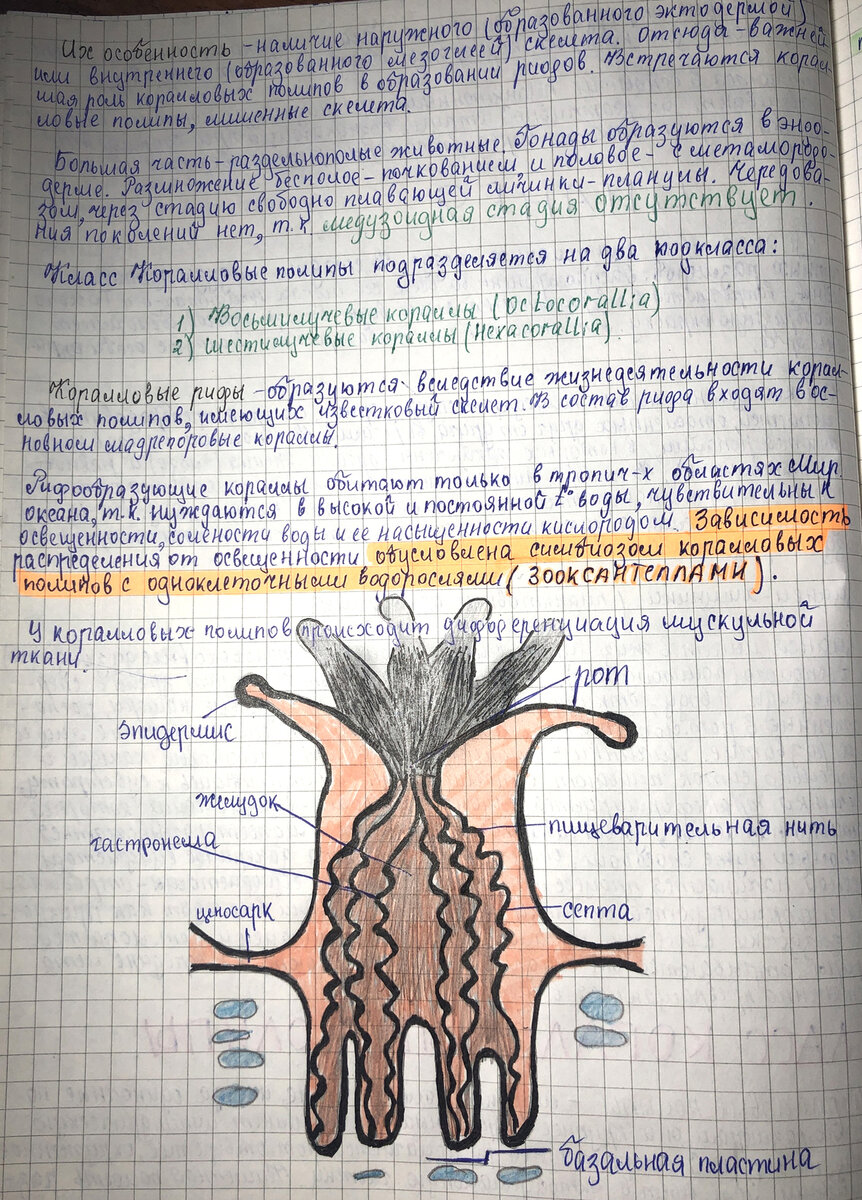 Их особенность - наличие наружного (образованного эктодермой)
или внутреннего (образованного мезоглеей) скелета. Отсюда - важней-
шая роль коралловых полипов в образовании рифов. Встречаются корал-
ловые полипы, лишенные скелета.
Большая часть - раздельнополые животные. Гонады образуются в энто-
дерме. Размножение бесполое - почкованием, и половое - с метаморфо-
зом, через стадию свободно плавающей личинки - планулы. Чередова-
ния поколений нет, т.к. медузоидная стадия отсутствует.
Класс Коралловые полипы подразделяется на два подкласса:
1) Восьмилучевые кораллы (Octocorallia)
2) Шестилучевые кораллы (Hexacorallia)
Коралловые рифы - образуются вследствие жизнедеятельности корал-
ловых полипов, имеющих известковый скелет. В состав рифа входят в ос-
новном мадрепоровые кораллы.
Рифообразующие кораллы обитают только в тропич-х областях Мир.
океана, т.к. нуждаются в высокой и постоянной t° воды, чувствительны к
освещенности, солёности воды и ее насыщенности кислородом. Зависимость
распределения от освещенности обусловлена симбиозом коралловых
полипов с одноклеточными водорослями (ЗООКСАНТЕЛЛАМИ).
У коралловых полипов происходит дифференциация мускульной
ткани.
рот
эпидермис
желудок
пищеварительная нить
гастроцела
ценосарк
септа
базальная пластина